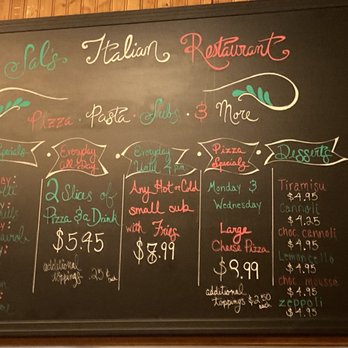 Sals Italian Restaurant
Pizza · Pasta · Subs · & More
Specials
Everyday
All Day
2 Slices of
Pizza & a Drink
$5.95
additional
toppings .25¢ each
Everyday
Until 4 pm
Any Hot or Cold
small sub
with Fries
$8.99
Pizza
Specials
Monday &
Wednesday
Large
Cheese Pizza
$8.99
additional
toppings $2.50
each
Desserts
Tiramisu
$4.95
Cannoli
$4.25
choc. cannoli
$4.95
Lemoncello
$4.95
choc. mousse
$4.95
zeppoli
$4.95